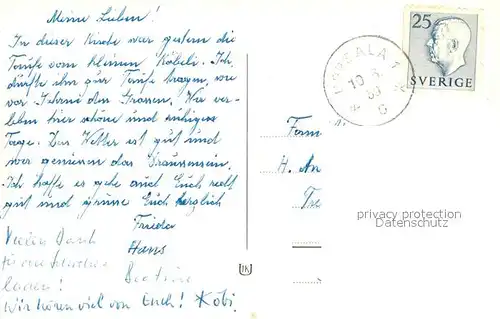 Meine Lieben!
In dieser Kirche war gestern die
Taufe vom kleinen Köbeli. Ich
durfte ihn zur Taufe tragen, wie
vor Jahren den Grossen. Wir ver-
leben hier schöne und ruhige
Tage. Das Wetter ist gut und
wir geniessen das Draussensein.
Ich hoffe es gehe auch Euch recht
gut und grüsse Euch herzlich
Frieda
Hans
Vielen Dank
für
Beatrice
Wir hören viel von Euch! Köbi
25
SVERIGE
UPPSALA 1
10 6
6
Fam
H. An
privacy protection
Datenschutz